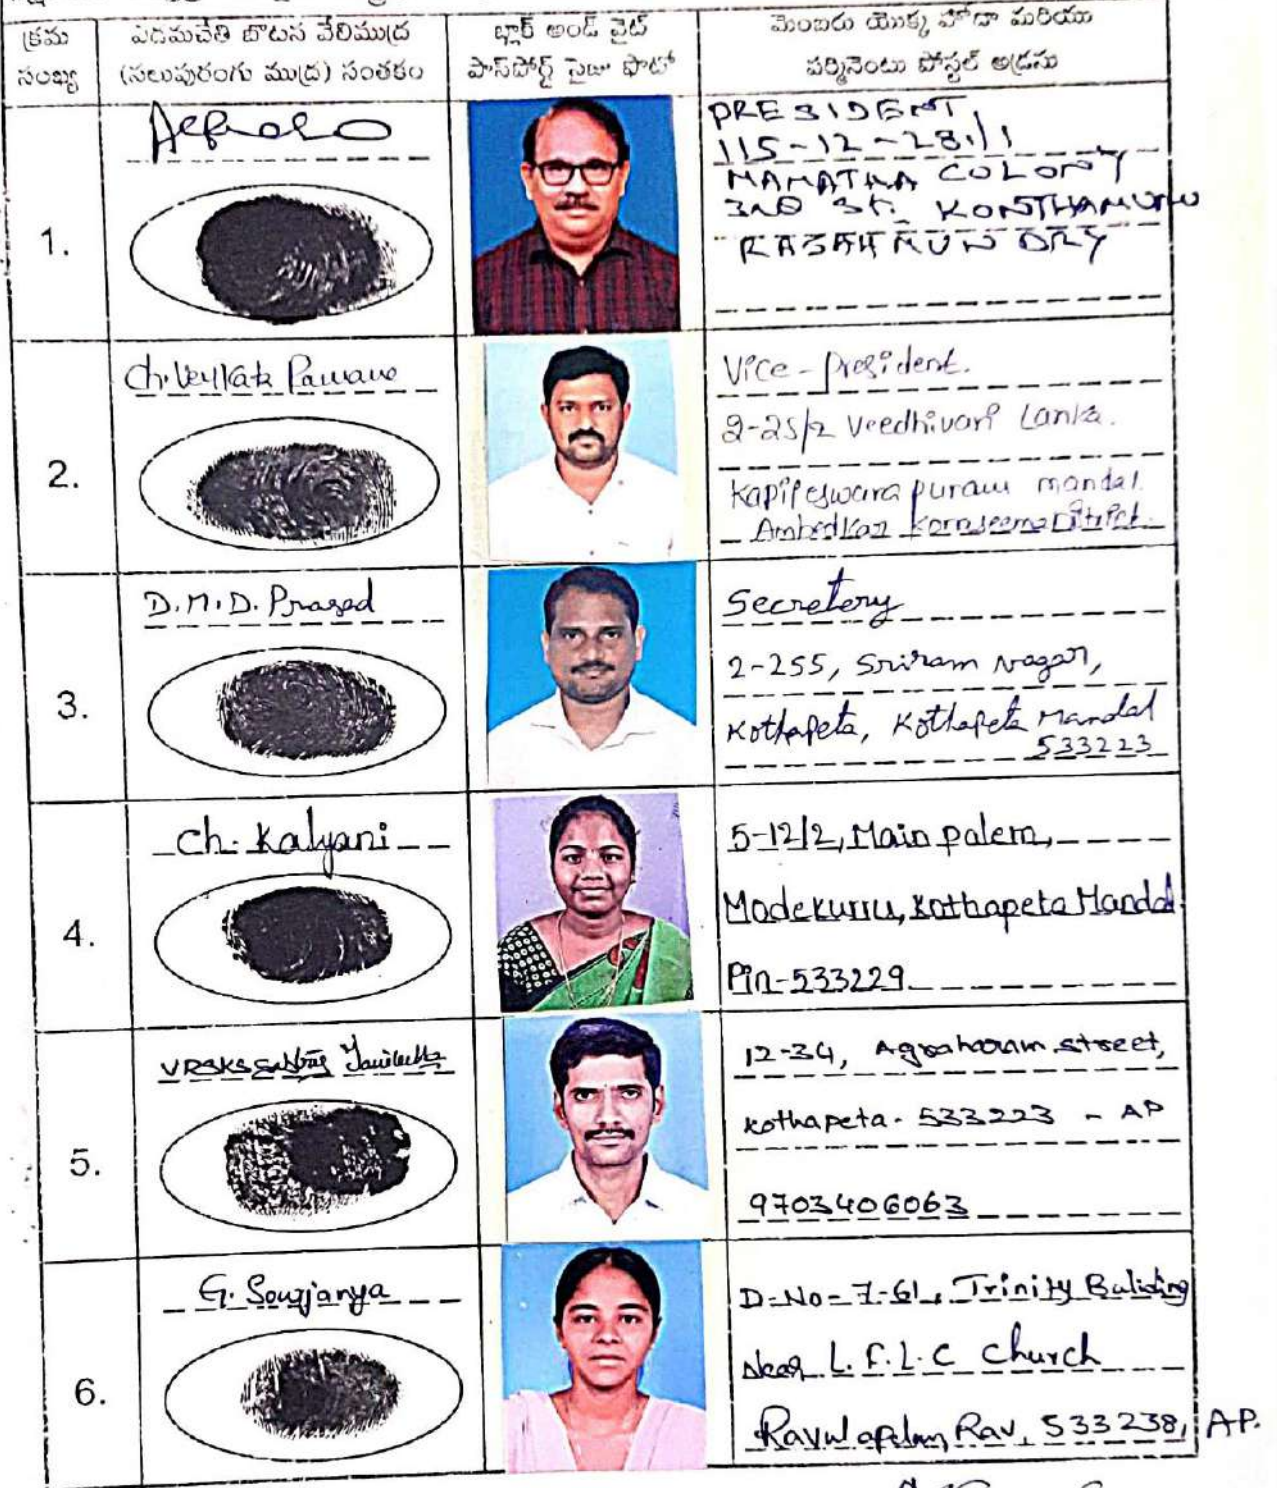 క్రమ సంఖ్య
ఎడమచేతి బొటన వేలిముద్ర (నలుపురంగు ముద్ర) సంతకం
బ్లాక్ అండ్ వైట్ పాస్‌పోర్ట్ సైజు ఫొటో
మెంబరు యొక్క హోదా మరియు పర్మినెంటు పోస్టల్ అడ్రసు
1.
PRESIDENT
115-12-28/1
MAMATHA COLONY
3RD St. KONTHAMURU
RAJAHMUNDRY
2.
Ch. Venkata Pawane
Vice-President.
2-25/2 Veedhivari Lanka.
Kapileswara puram mandal.
Ambedkar Konaseema District.
3.
D.M.D. Prasad
Secretery
2-255, Sriram Nagar,
Kothapeta, Kothapeta Mandal
533223
4.
Ch. Kalyani
5-12/2, Main palem,
Modekurru, Kothapeta Mandal
Pin-533229
5.
VRSKS
12-34, Agraharam street,
Kothapeta- 533223 - AP
9703406063
6.
G. Sowjanya
D-No-7-61, Trinity Buliding
Near L.F.L.C Church
Ravulapalem, Rav, 533238, AP.